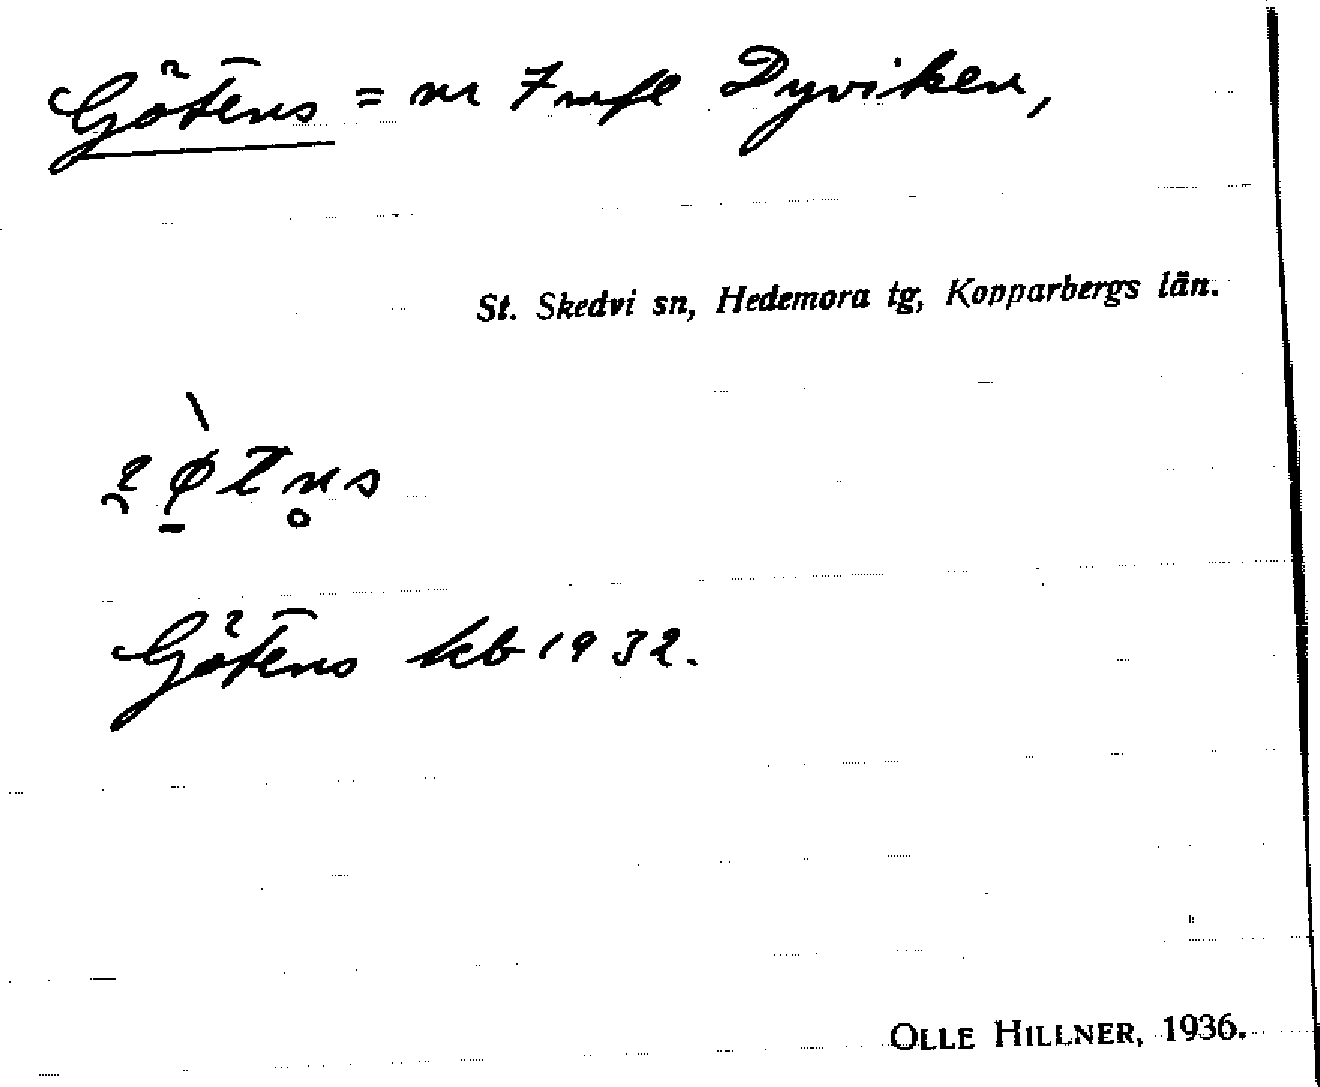 Götens = nr 7 mfl Dyviken,
St. Skedvi sn, Hedemora tg, Kopparbergs län.
Götens kb 1932.
OLLE HILLNER, 1936.